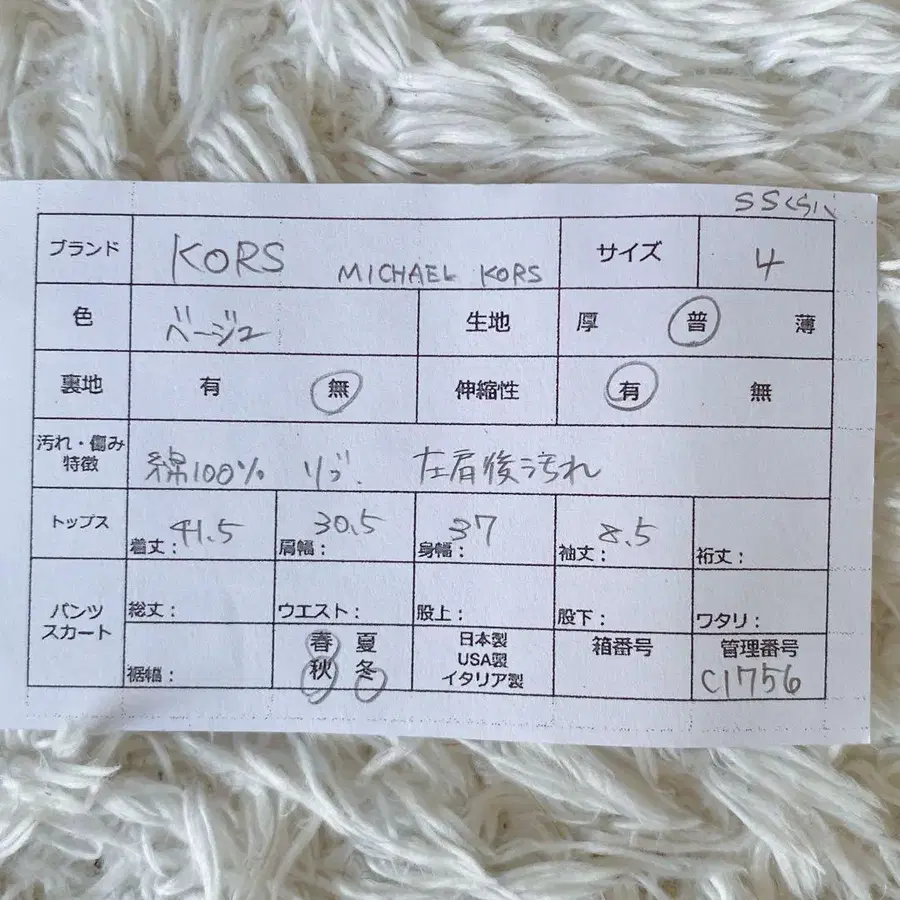 SSくらい
ブランド KORS MICHAEL KORS サイズ 4
色 ベージュ 生地 厚 普 薄
裏地 有 無 伸縮性 有 無
汚れ・傷み
特徴 綿100% リブ. 左肩後汚れ
トップス 着丈: 41.5 肩幅: 30.5 身幅: 37 袖丈: 8.5 裄丈:
パンツ
スカート
総丈: ウエスト: 股上: 股下: ワタリ:
裾幅:
春 夏
秋 冬
日本製
USA製
イタリア製
箱番号
管理番号
C1756